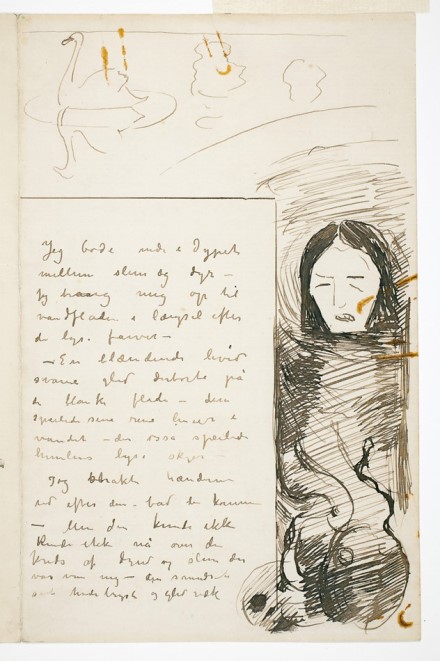 Jeg bode nede i dypet
mellem slim og dyr –
Jeg trang mig op til
vandfladen i længsel efter
de lyse farver –
– En blændende hvid
svane gled derborte på
de blank flade – den
speilede sine rene linier i
vandet – der ossa speilede
himlens lyse skyer –
Jeg strakte hænderne
ud efter den – bad de komme
– Men den kunde ikke
Kunde ikke nå over den
Kreds af dynd og slim der
var om mig – den
sit hvide bryst og gled væk